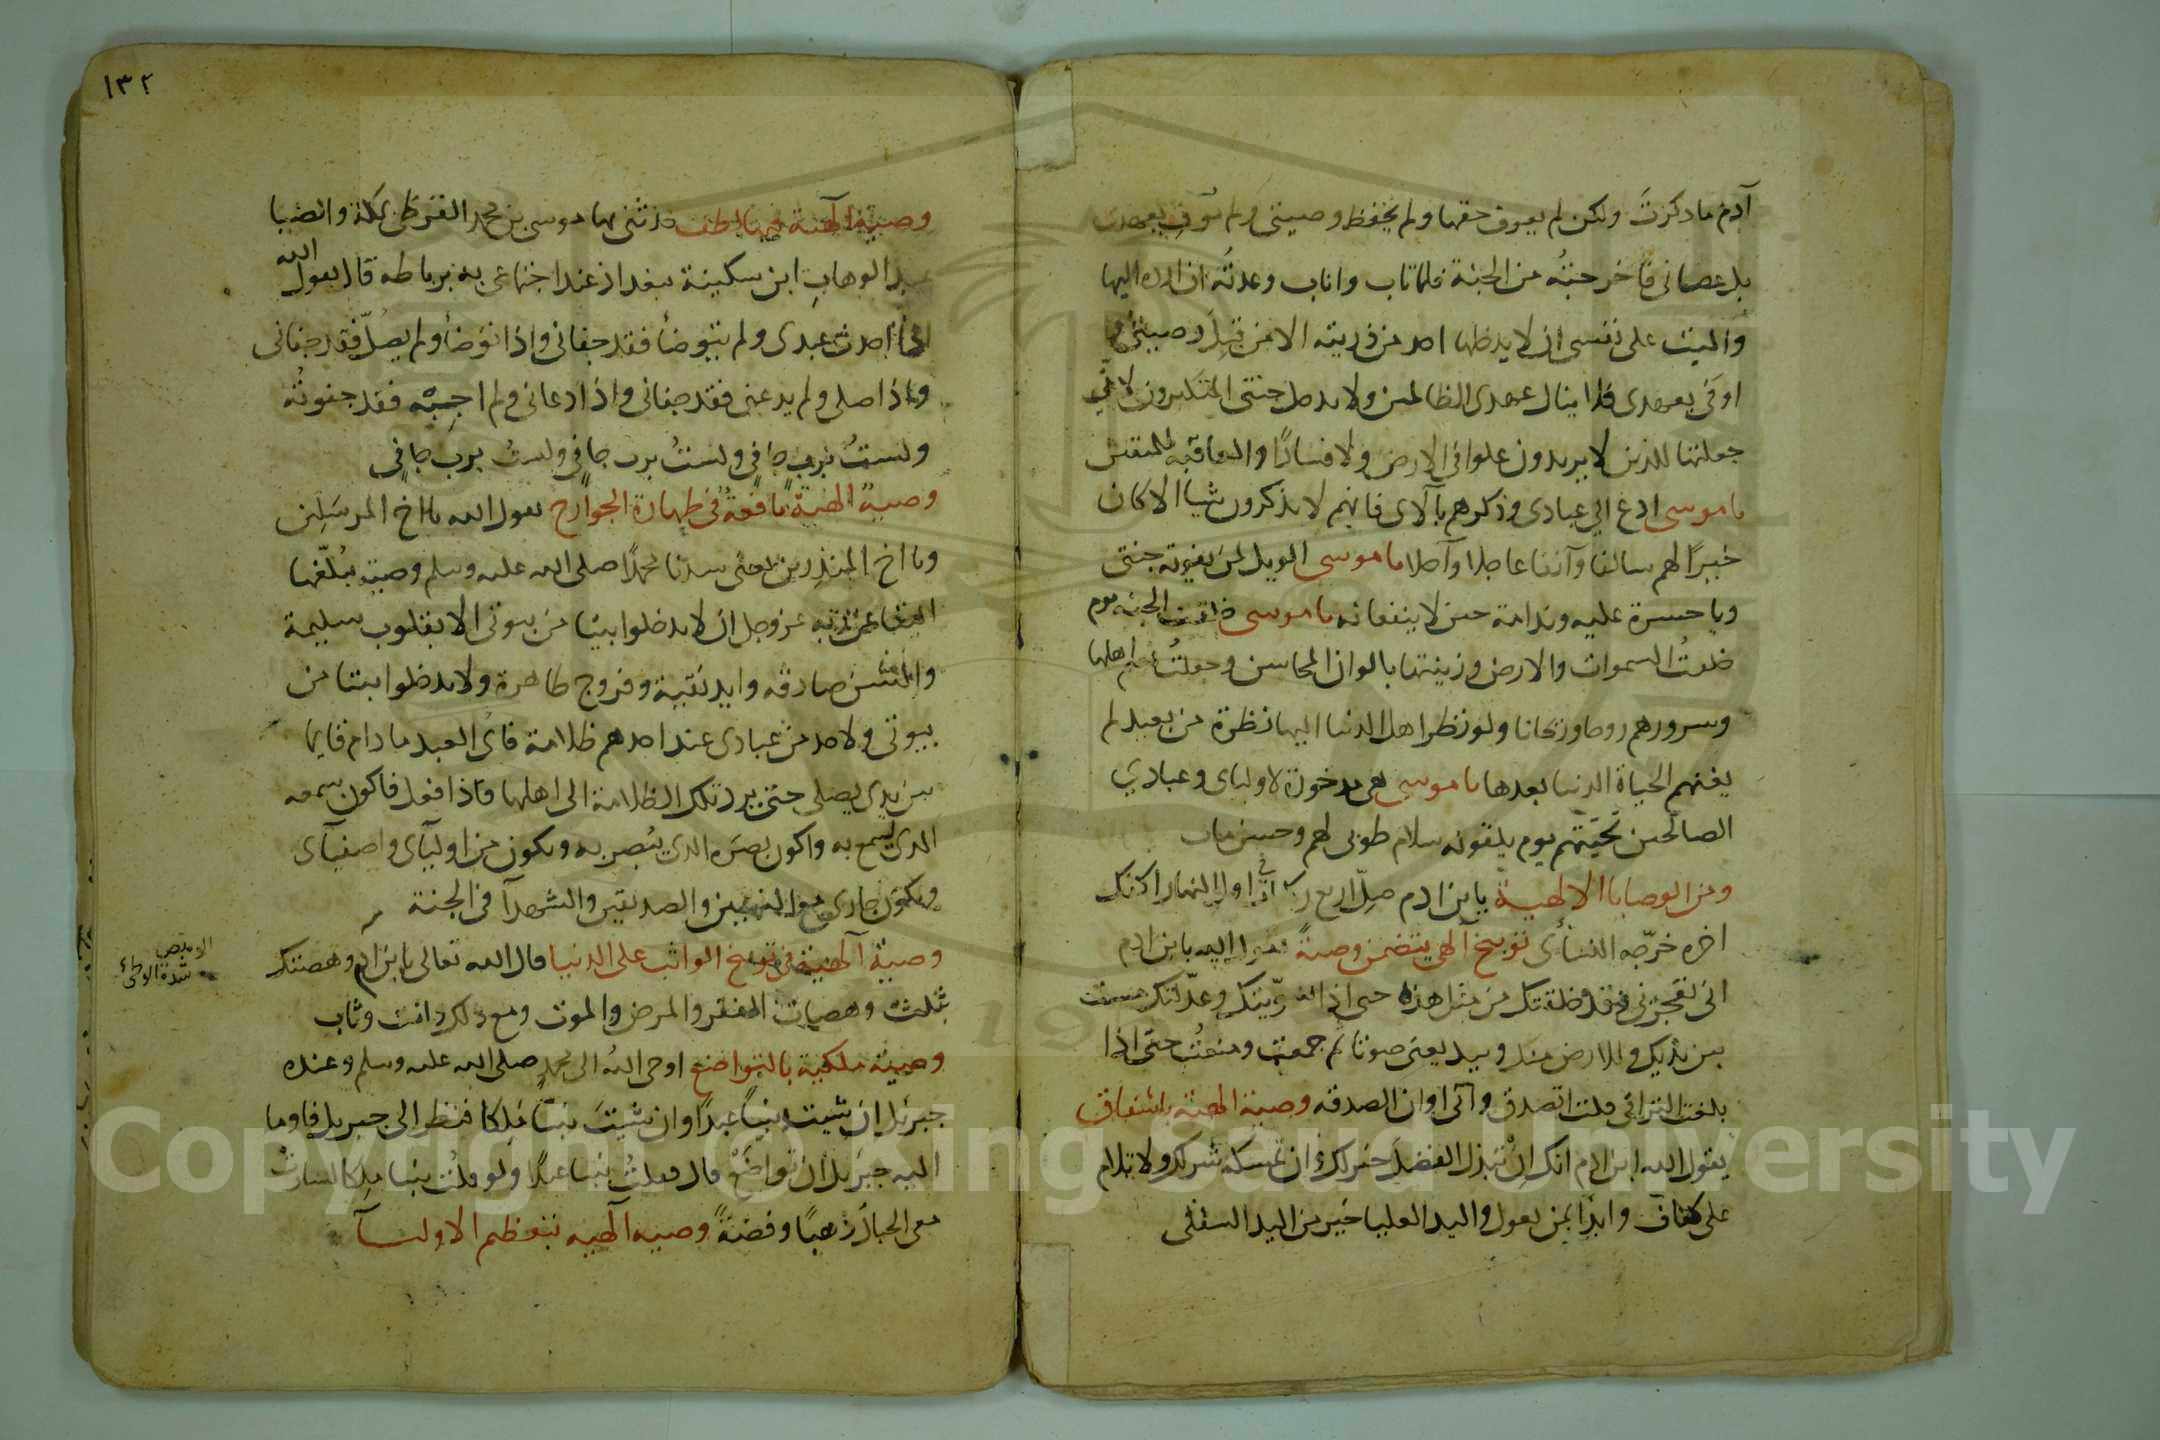 آدم ما ذكرت ولكن لم يعرف حقها ولم يحفظ وصيتي ولم يوف بعهدي
بل عصاني فاخرجته من الجنة فلما تاب واناب وعدته ان ارده اليها
واليت على نفسي ان لا يدخلها احد من ذريته الا من قبل وصيتي و
اوفى بعهدي فلا ينال عهدي الظالمين ولا يدخل جنتي المتكبرون لاني
جعلتها للذين لا يريدون علوا في الارض ولا فسادًا والعاقبه للمتقين
يا موسى ادع الي عبادي وذكرهم بآلاى فانهم لا يذكرون شيا الا كان
خيرًا لهم سالفا وآنفا عاجلا وآجلا يا موسى الويل لمن يفوته جنتي
ويا حسرة عليه وندامة حين لا ينفعانه يا موسى خلقت الجنه يوم
خلقتُ السموات والارض وزينتها بالوان المحاسن وجعلتُ نعيم اهلها
وسرورهم روحا وريحانا ولو نظر اهل الدنيا اليها نظرة من بعيد لم
يهنهم الحياة الدنيا بعدها يا موسى هى مدخورة لاولياى وعبادي
الصالحين تحيتهم يوم يلقونه سلام طوبى لهم وحسن ماب
ومن الوصايا الالهية يابن ادم صلّ اربع ركعات في اول النهار اكفك
اخره خرّجه النسأى توبيخ آلهى يتضمن وصيةً يقول الله يابن ادم
انى تعجزنى وقد خلقتك من مثل هذه حتى اذا سوّيتك وعدّلتك مشيت
بين برديك وللارض منك وييد يعنى صوتا ثم جمعت ومنعتُ حتى اذا
بلغت التراقي قلت اتصدق وآنى اوان الصدقه وصية الهية باشفاق
يقول الله ابن ادم انك اِنْ تبذل الفضلَ خير لك وان تمسكه شر لك ولا تلام
على كفاف وابدا بمن يعول واليد العليا خير من اليد السفلى
١٣٢
وصية الهية فيها لطف حدثنى بها موسى بن محمد القرطبي بمكة والضيا
عبد الوهاب ابن سكينة ببغداد عند اجتماعى به برباطه قال يقول الله
اذا احدث عبدى ولم يتوضأ فقد جفانى واذا توضأ ولم يصلّ فقد جفانى
واذا صلى ولم يدعنى فقد جفانى واذا دعانى ولم اجبه فقد جفوتُه
ولستُ برب جافي ولستُ برب جافي ولستُ برب جافي
وصية الهية نافعة في طهارة الجوارح يقول الله يا اخ المرسَلين
ويا اخ المنذرين يعنى سيدنا محمدًا صلى الله عليه وسلم وصية بلّغها
الينا عن ربه عز وجل ان لا يدخلوا بيتا من بيوتى الا بقلوب سليمة
والسن صادقه وايد نقية وفروج طاهرة ولا يدخلوا بيتا من
بيوتى ولاحد من عبادى عند احدهم ظلامة فانى العبد مادام قايما
بين يدي يصلى حتى يرد تلك الظلامة الى اهلها فاذا فعل فاكون سمعه
الذي يسمع به واكون بصره الذي يبصر به ويكون من اوليآى واصفيآى
ويكون جارى مع النبيين والصديقين والشهدآ في الجنة
وصية آلهية في توبيخ الواثب على الدنيا قال الله تعالى يابن ادم وهصتك
بثلث وهصات الفقر والمرض والموت ومع ذلك انت وثاب
الوهص
شدة الوطئ
وصية ملكية بالتواضع اوحى الله الى محمد صلى الله عليه وسلم وعنده
جبريل ان شيت نبيًا عبدًا وان شيتَ نبيًا مَلِكا فنظر الى جبريل فاوما
اليه جبريل ان تواضَعْ قال فقلتُ نبيا عبدًا ولو قلتُ نبيا ملِكا لسارتْ
معى الجبال ذهبًا وفضةً وصيه آلهيه بتعظيم الاوليآ
Copyright © King Saud University